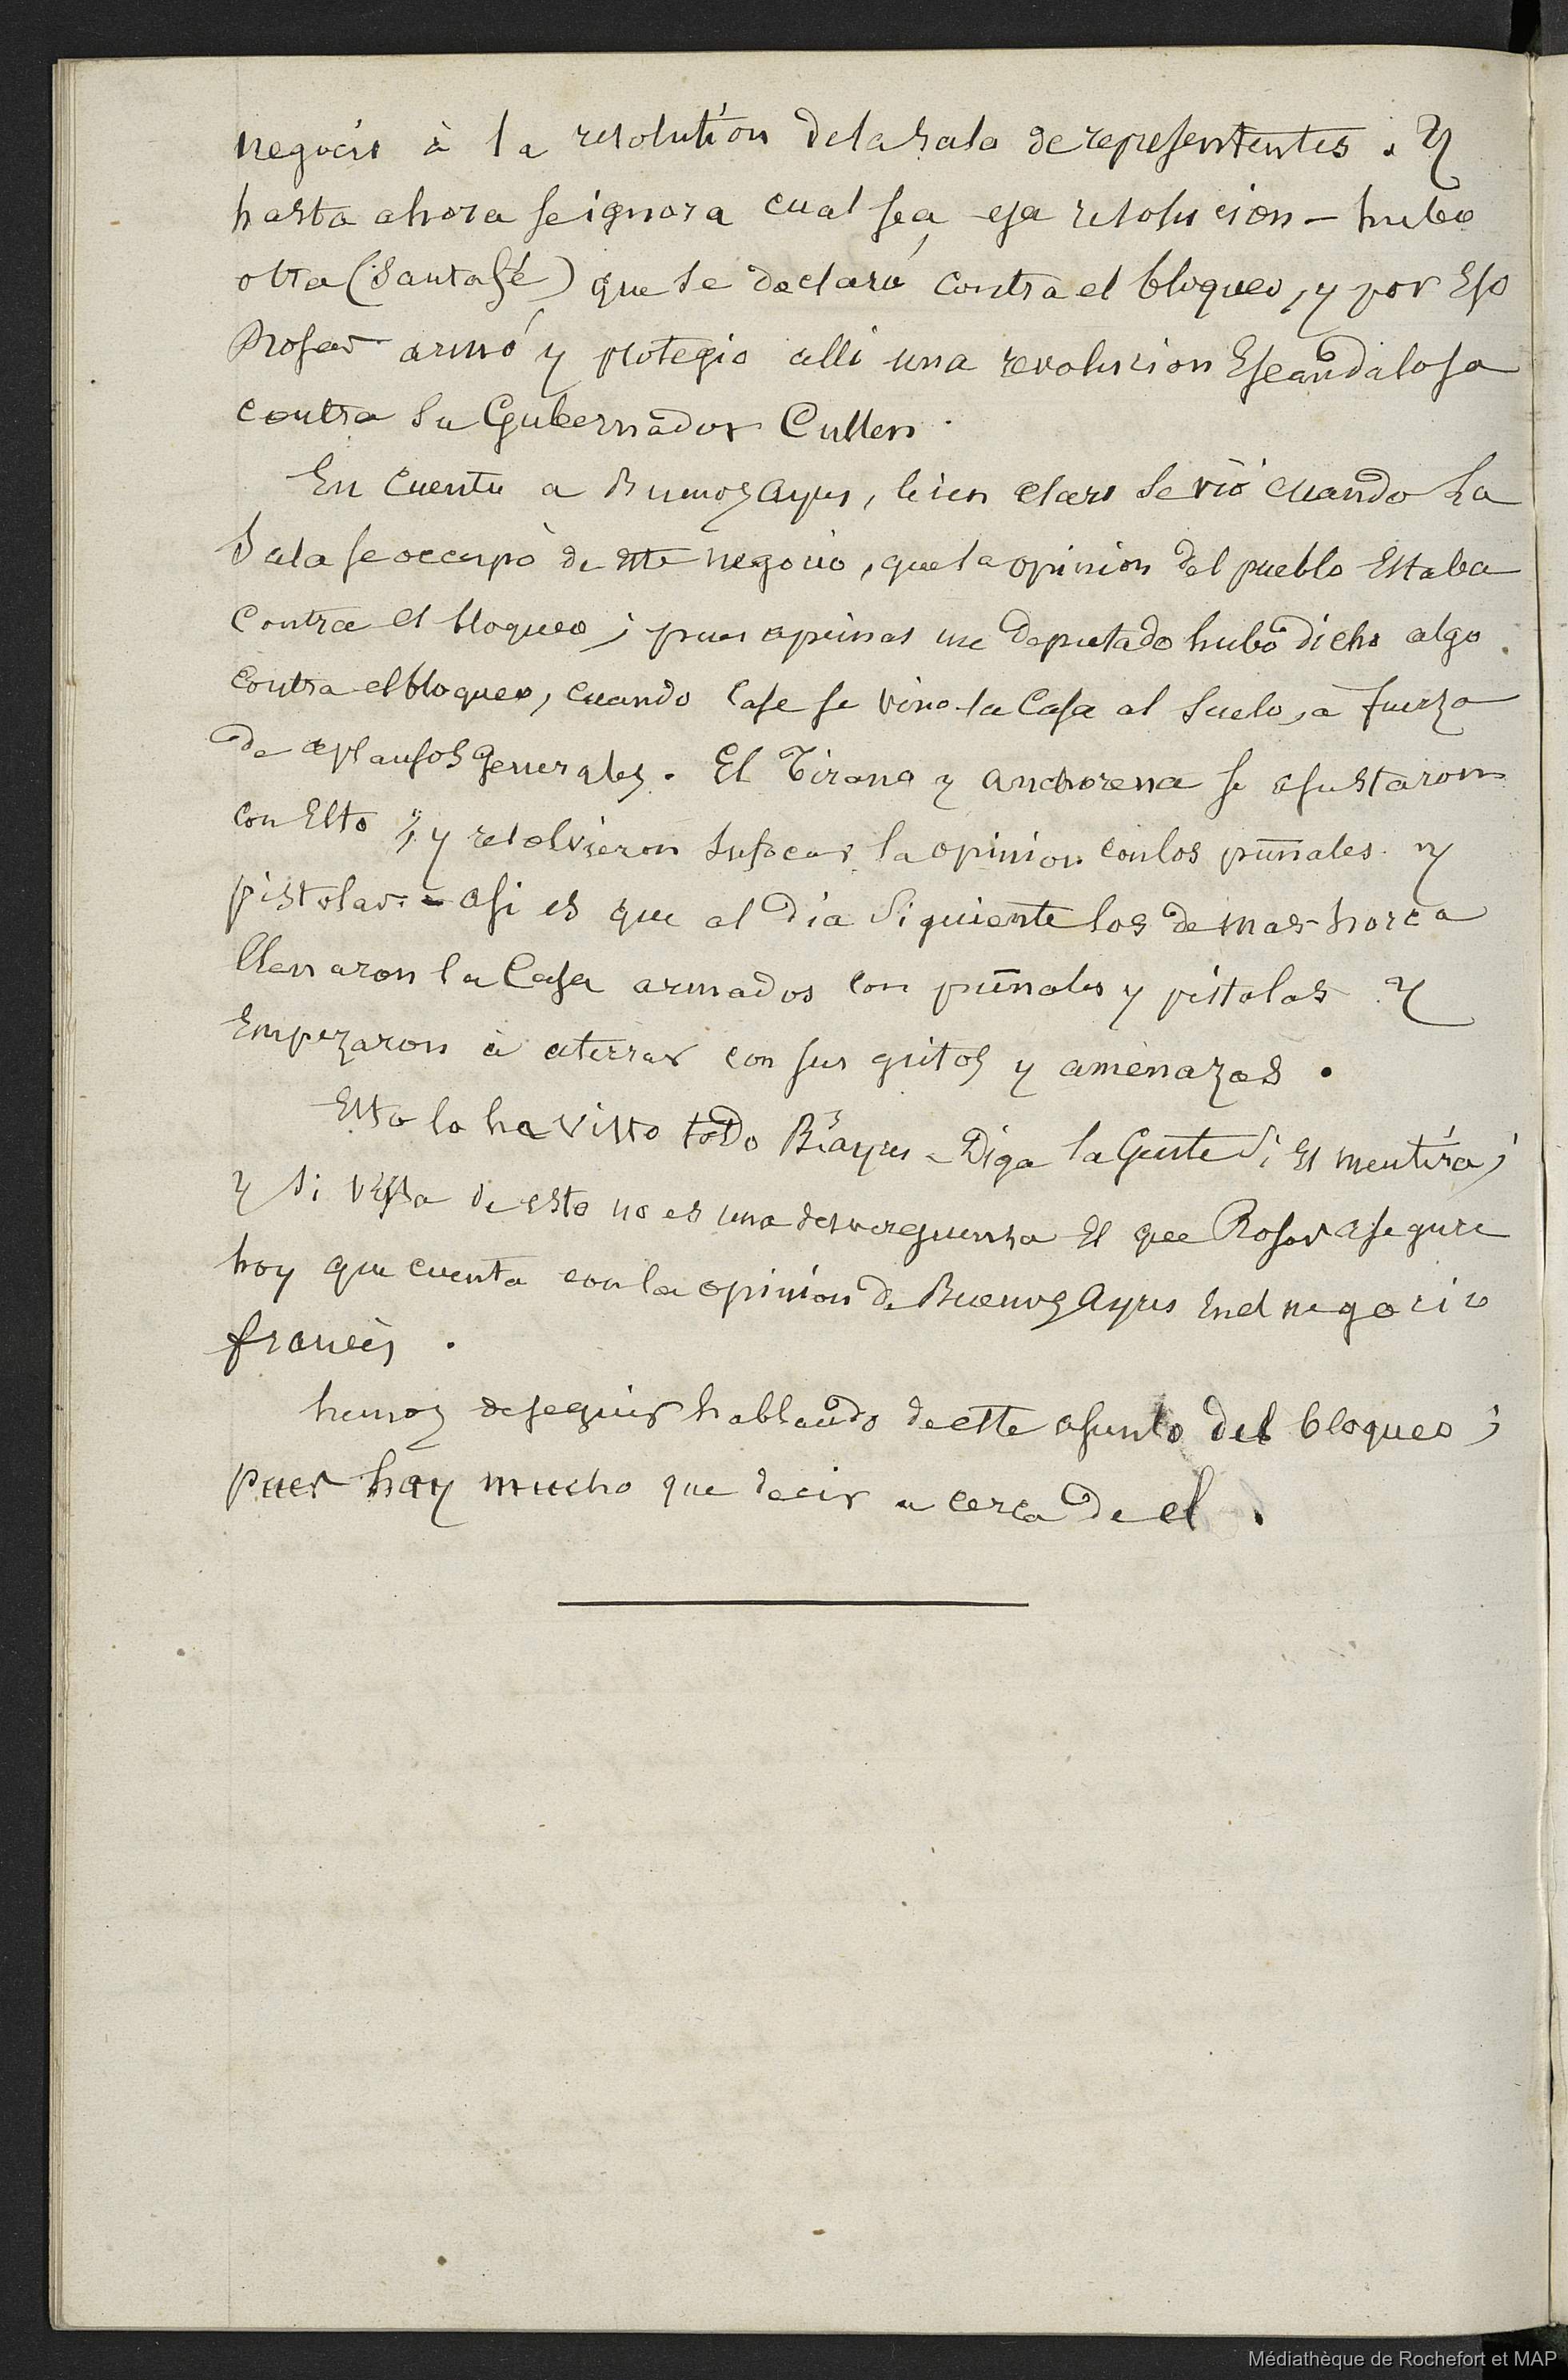 negocio à la resolutíon dela sala de represententes. Y
hasta ahora se ignora cual sea esa resolucion – hubo
otra (Santa fé) que se declaró contra el bloqueo, y por Eso
Rosas armó y protegio alli una revolucion Escandalosa
contra Su Gubernador Cullen.
En cuento a Buenos Ayres, bien claro Se vió cuando La
Sala se occupò de este negocio, que la opinion del pueblo Estaba
contra el bloqueo; pues apeinas un deputado hubo dicho algo
contra el bloqueo, cuando case se vino la Casa al Suelo, a fuerza
de aplausos Generales. El Tirano y anchorena se asustaron
con Esto ; y resolvieron Sufocar la opinion con los puñales y
pistolas. – asi es que al dia Siguiente los de mas-horca
llenaron la Casa armados con puñales y pistolas Y
Empezaron à aterrar con sus gritos y amenazas.
Esto lo ha visto todo Bs ayres – Diga la Gente Si Es mentira;
y Si vista de esto no es una desverguensa El que Rosas asegure
hoy que cuenta con la opinion de Buenos Ayres En el negocio
francès.
hemos de seguir hablando de este asunto del bloqueo;
pues hay mucho que decir a cerca de el.
Médiathèque de Rochefort et MAP